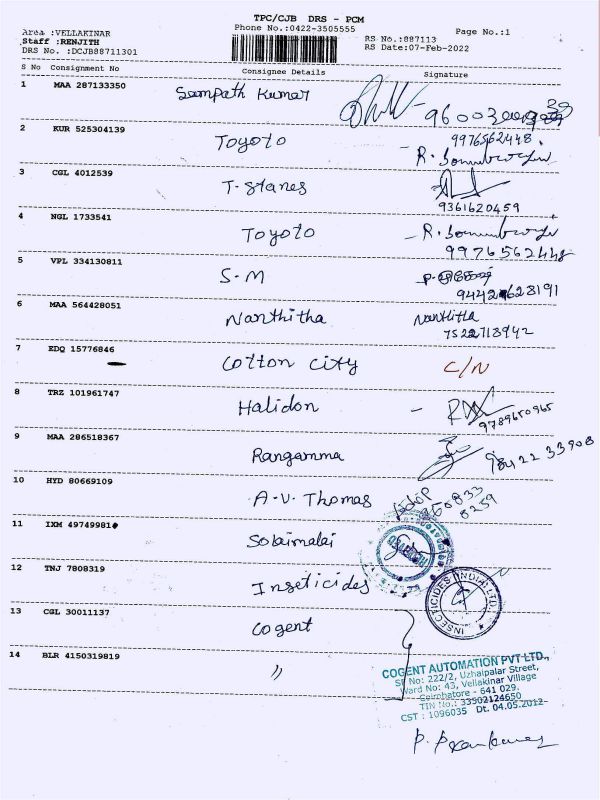 TPC/CJB DRS - PCM
Area :VELLAKINAR Phone No.:0422-3505555 Page No.:1
Staff :RENJITH RS No.:887113
DRS No. :DCJB88711301 RS Date:07-Feb-2022
S No Consignment No Consignee Details Signature
1 MAA 287133350 Sampath Kumar
2 KUR 525304139 Toyoto 9976562448
3 CGL 4012539 T-Stanes 9361620459
4 NGL 1733541 Toyoto 9976562448
5 VPL 334130811 S-M
6 MAA 564428051 Nanthitha Nanthitha
7522713942
7 EDQ 15776846 Cotton City C/N
8 TRZ 101961747 Halidon 9789650965
9 MAA 286518367 Rangamma 98422 33908
10 HYD 80669109 A.V. Thomas
11 IXM 49749981 Solaimalai
12 TNJ 7808319 Inseticides
INSECTICIDES (INDIA) LTD.
13 CGL 30011137 Cogent
14 BLR 4150319819 "
COGENT AUTOMATION PVT LTD.,
SF No: 222/2, Uzhaipalar Street,
Ward No: 43, Vellakinar Village
Coimbatore - 641 029.
TIN No.: 33502124650
CST : 1096035 Dt. 04.05.2012